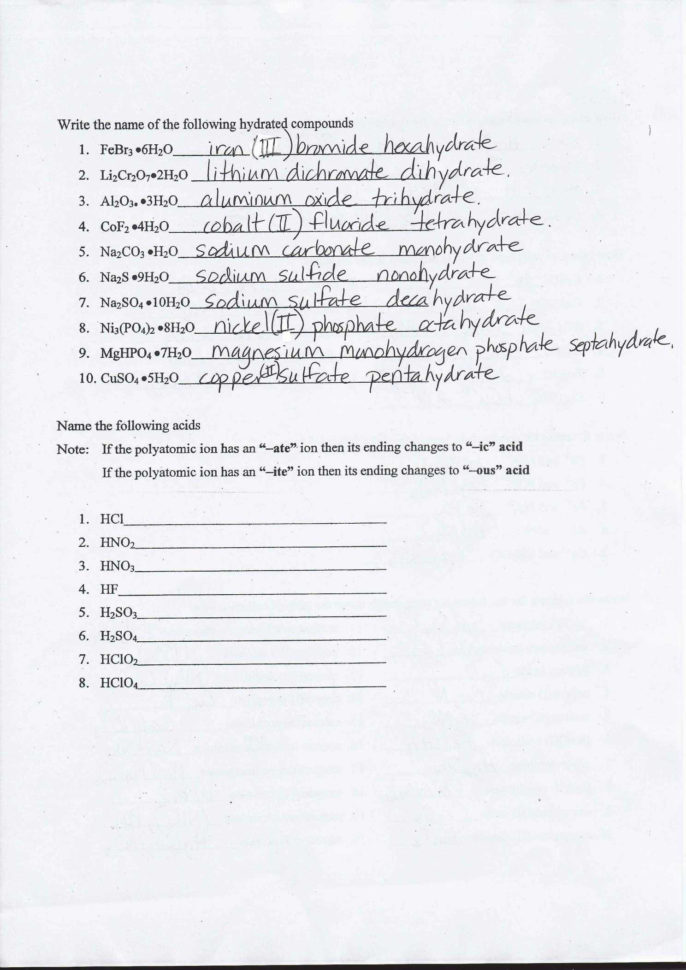 Write the name of the following hydrated compounds
1. FeBr₃•6H₂O iron (III) bromide hexahydrate
2. Li₂Cr₂O₇•2H₂O lithium dichromate dihydrate.
3. Al₂O₃.•3H₂O aluminum oxide trihydrate.
4. CoF₂•4H₂O cobalt (II) fluoride tetrahydrate.
5. Na₂CO₃•H₂O sodium carbonate monohydrate
6. Na₂S•9H₂O sodium sulfide nonohydrate
7. Na₂SO₄•10H₂O sodium sulfate decahydrate
8. Ni₃(PO₄)₂•8H₂O nickel (II) phosphate octahydrate
9. MgHPO₄•7H₂O magnesium monohydrogen phosphate septahydrate.
10. CuSO₄•5H₂O copper (II) sulfate pentahydrate
Name the following acids
Note: If the polyatomic ion has an “–ate” ion then its ending changes to “–ic” acid
If the polyatomic ion has an “–ite” ion then its ending changes to “–ous” acid
1. HCl
2. HNO₂
3. HNO₃
4. HF
5. H₂SO₃
6. H₂SO₄
7. HClO₂
8. HClO₄